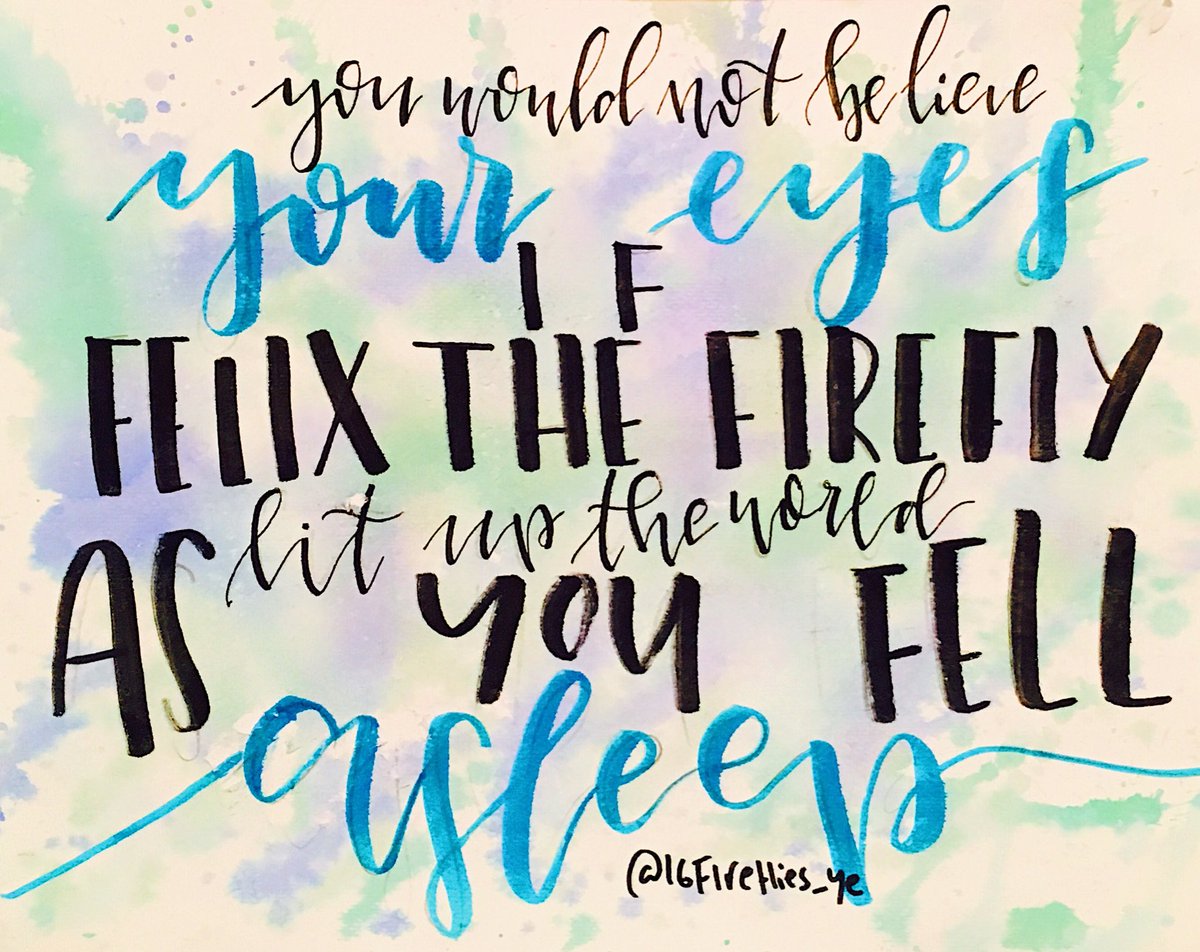 you would not believe
your eyes
IF
FELIX THE FIREFLY
lit up the world
AS YOU FELL
asleep
@16Fireflies_ye